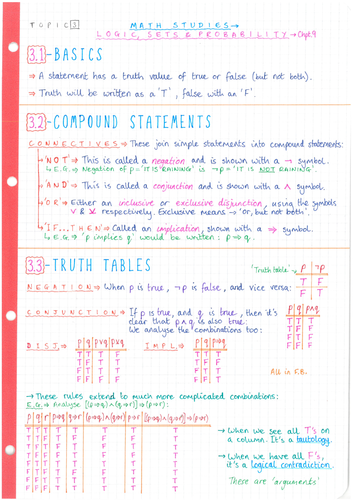 TOPIC 3
MATH STUDIES →
LOGIC, SETS & PROBABILITY → Chpt.9
3.1 - BASICS
⇒ A statement has a truth value of true or false (but not both).
⇒ Truth will be written as a 'T', false with an 'F'.
3.2 - COMPOUND STATEMENTS
CONNECTIVES → These join simple statements into compound statements:
'NOT' → This is called a negation and is shown with a ¬ symbol.
↳ E.G. → Negation of p = 'IT IS RAINING' is ¬p = 'IT IS NOT RAINING'.
'AND' → This is called a conjunction and is shown with a ∧ symbol.
'OR' → Either an inclusive or exclusive disjunction, using the symbols
∨ & ⊻ respectively. Exclusive means → 'or, but not both'.
'IF... THEN' → Called an implication, shown with a ⇒ symbol.
↳ E.G. → 'p implies q' would be written: p ⇒ q.
3.3 - TRUTH TABLES
'Truth table' → p ¬p
T F
F T
NEGATION → When p is true, ¬p is false, and vice versa:
CONJUNCTION → If p is true, and q is true, then it's
clear that p∧q is also true.
We analyse the combinations too:
p q p∧q
T T T
T F F
F T F
F F F
DISJ. → p q p∨q p⊻q
T T T F
T F T T
F T T T
F F F F
IMPL. → p q p⇒q
T T T
T F F
F T T
F F T
All in F.B.
→ These rules extend to much more complicated combinations:
E.G. → Analyse [(p⇒q)∧(q⇒r)]⇒(p⇒r):
p q r p⇒q q⇒r (p⇒q)∧(q⇒r) p⇒r [(p⇒q)∧(q⇒r)]⇒(p⇒r)
→ When we see all T's on
a column. It's a tautology.
→ When we have all F's,
it's a logical contradiction.
These are 'arguments'